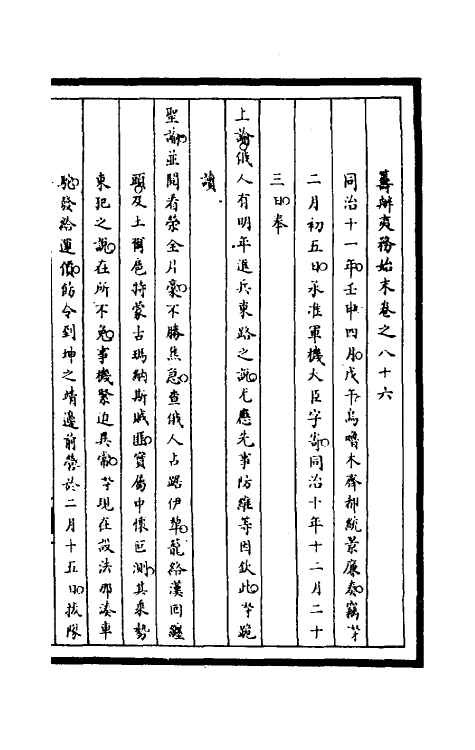 籌辦夷務始末卷之八十六
同治十一年壬申四月戊午烏嚕木齊都統景廉奏竊奴才
二月初五日承准軍機大臣字寄同治十年十二月二十
三日奉
上諭俄人有明年進兵東路之說尤應先事防維等因欽此奴才跪
讀
聖諭並閱看榮全片稾不勝焦急查俄人占踞伊犂籠絡漢回纏
頭及土爾扈特蒙古瑪納斯賊匪實屬中懷叵測其乘勢
東犯之說在所不免事機緊迫異常奴才現在設法那湊車
駝發給運價飭令到坤之靖邊前營於二月十五日拔隊